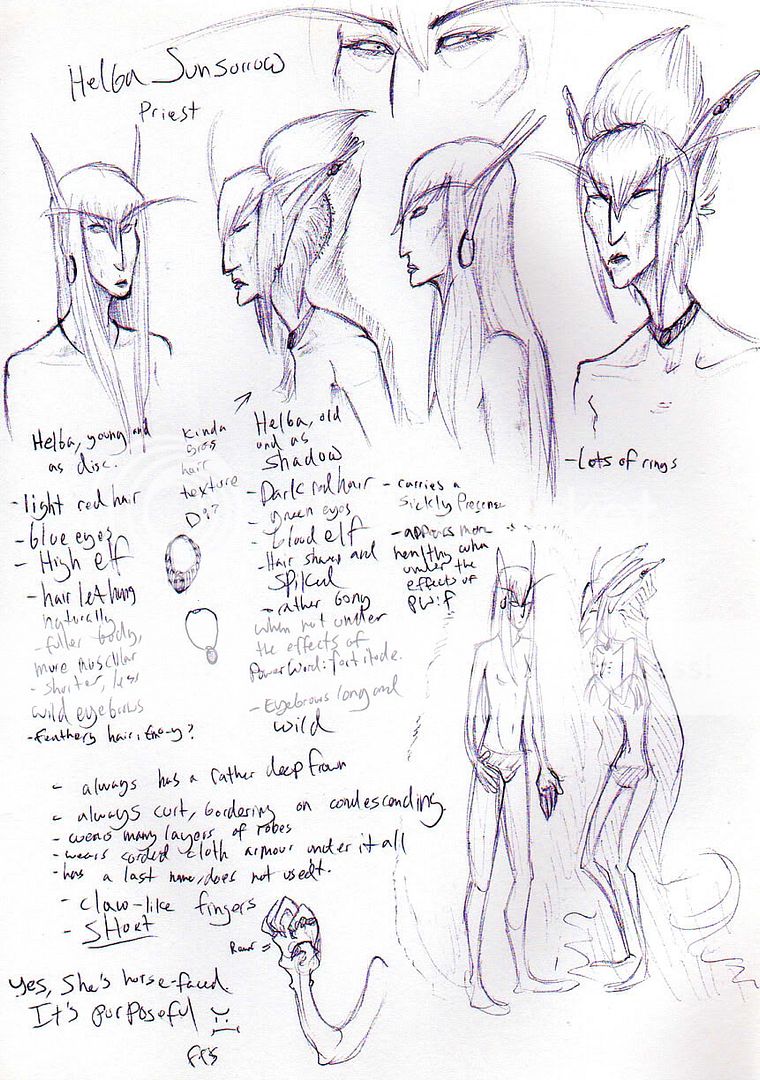 Helba Sunsorrow
Priest
Helba, young and
as disc.
-light red hair
-blue eyes
- High elf
- hair let hung
naturally
- fuller body,
more muscular
- shorter, less
wild eyebrows
-feathery hair,
kinda
gross
hair
texture
D8?
Helba, old
and as
shadow
-Dark red hair
- green eyes
- blood elf
-Hair shaved and
spiked
- rather bony
when not under
the effects of
Power Word: Fortitude.
- Eyebrows long and
wild
- carries a
sickly presence
- appears more
healthy when
under the
effects of
PW:F
-Lots of rings
- always has a rather deep frown
- always curt, bordering on condescending
- wears many layers of robes
- wears corded cloth armour under it all
- has a last name, does not use it.
- claw-like fingers
- SHORT
Rawr =
Yes, She's horse-faced.
It's purposeful
ffs